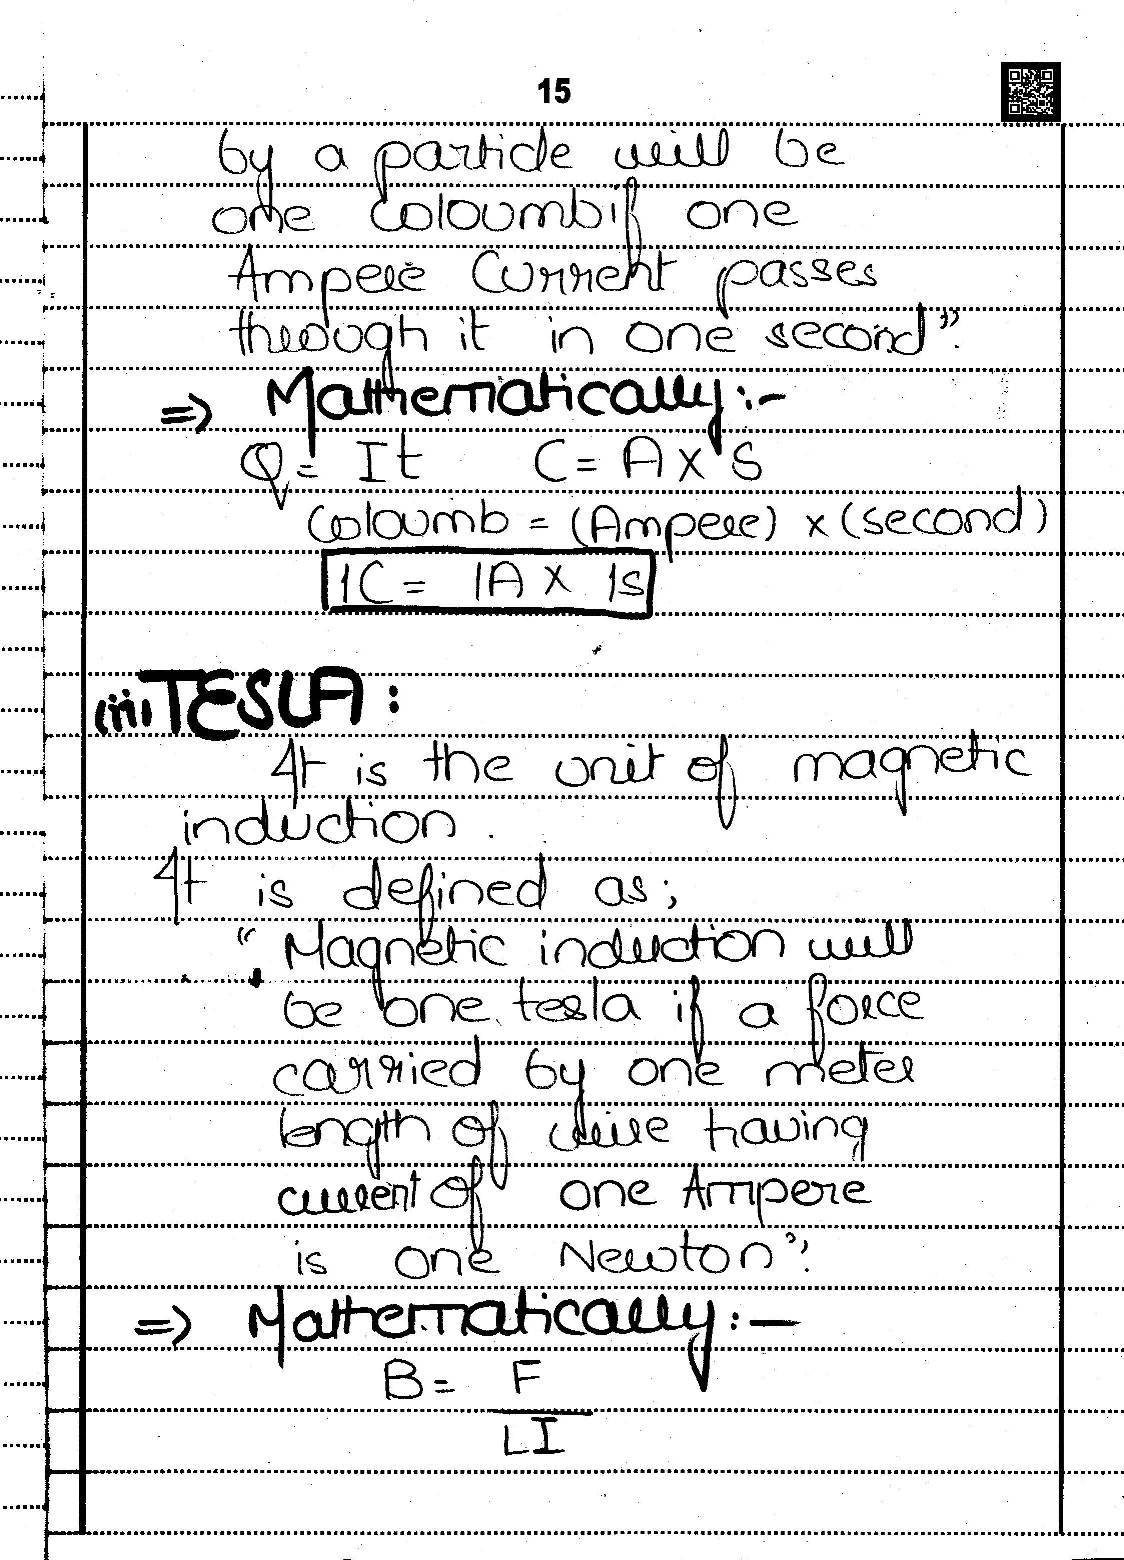 15
by a particle will be
one Coloumb if one
Ampere Current passes
through it in one second".
=> Mathematically:-
Q = It C = A x S
Coloumb = (Ampere) x (second)
1C = 1A x 1s
(iii) TESLA:
It is the unit of magnetic
induction.
It is defined as;
"Magnetic induction will
be one tesla if a force
carried by one meter
length of wire having
current of one Ampere
is one Newton".
=> Mathematically:-
B = F
LI